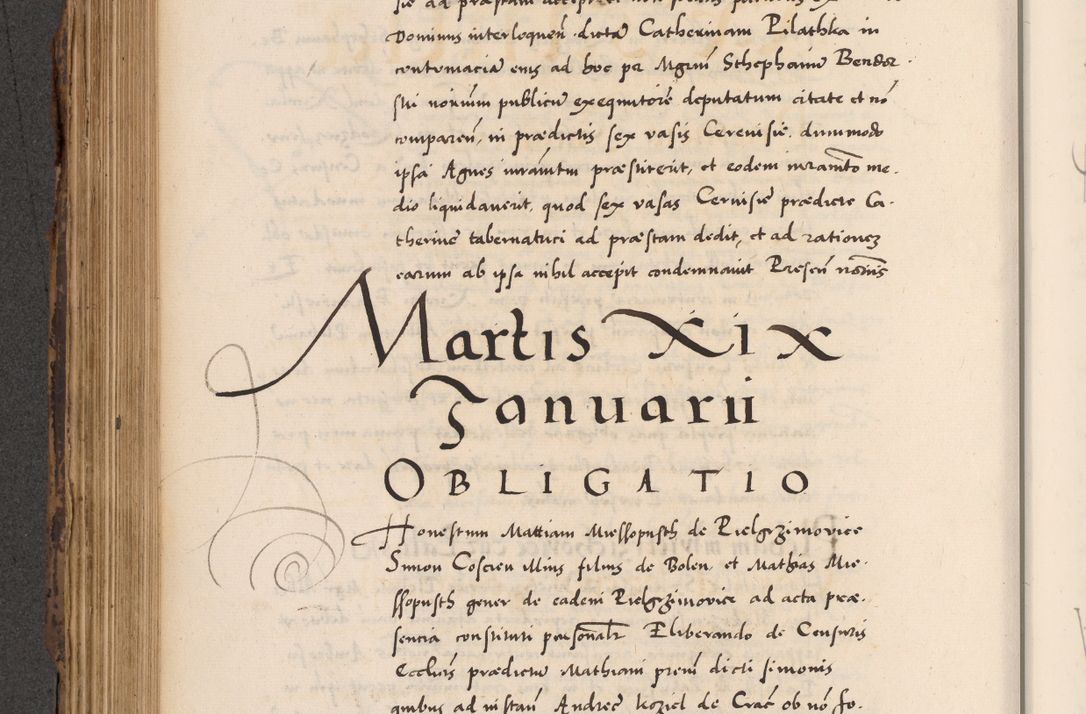 Dominus interloquen̄ dictā Catherinam Pilathka in
contumaciā eius ad hoc per Mgrum̄ Sthephanū Bender
sui notarium publicū exequutorē deputatum citatē et nō
comparen̄, in prædictis sex vasis Cerevisiæ, dummodo
ipsa Agnes iuram̄tum præstiterit, et eodem iuramēto me-
dio liquidaverit, quod sex vasas Cervisiæ prædictæ Ca-
therinæ tabernatrici ad præstam dedit, et ad rationes
earum ab ipsa nihil accepit condemnavit Presen̄
Martis XIX
Januarii
OBLIGATIO
Honestum Mattiam Miessopusth de Pielgrzimovice
Simon Coscien Illius filius de Bolen, et Mathias Mie-
ssopusth gener de eadem Pielgrzimovice ad acta præ-
sencia constituti personal̄r Eliberando de Censuris
Eccliās prædictū Mathiam pren̄ dicti simonis
quibus ad instan̄ Andreæ koziel de Crac̄ ob nō so-